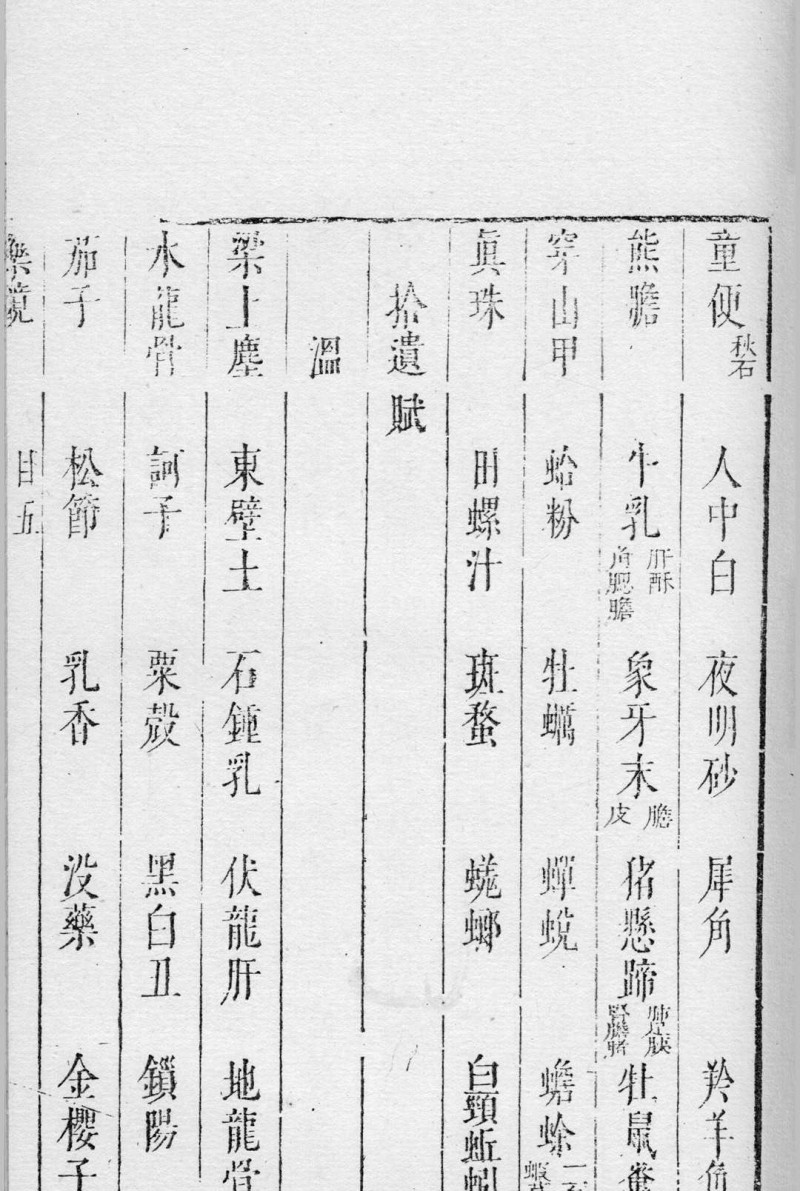 童便秋石 人中白 夜明砂 犀角 羚羊角
熊膽 牛乳肝酥 象牙末膽皮 猪懸蹄 牡鼠糞
穿山甲 蛤粉 牡蠣 蟬蛻 蟾蜍
眞珠 田螺汁 斑蝥 蜣蜋 白頸蚯蚓
拾遺賦
溫
梁上塵 東壁土 石鍾乳 伏龍肝 地龍骨
木龍骨 訶子 粟殼 黑白丑 鎖陽
茄子 松節 乳香 没藥 金櫻子
藥鏡 目 五